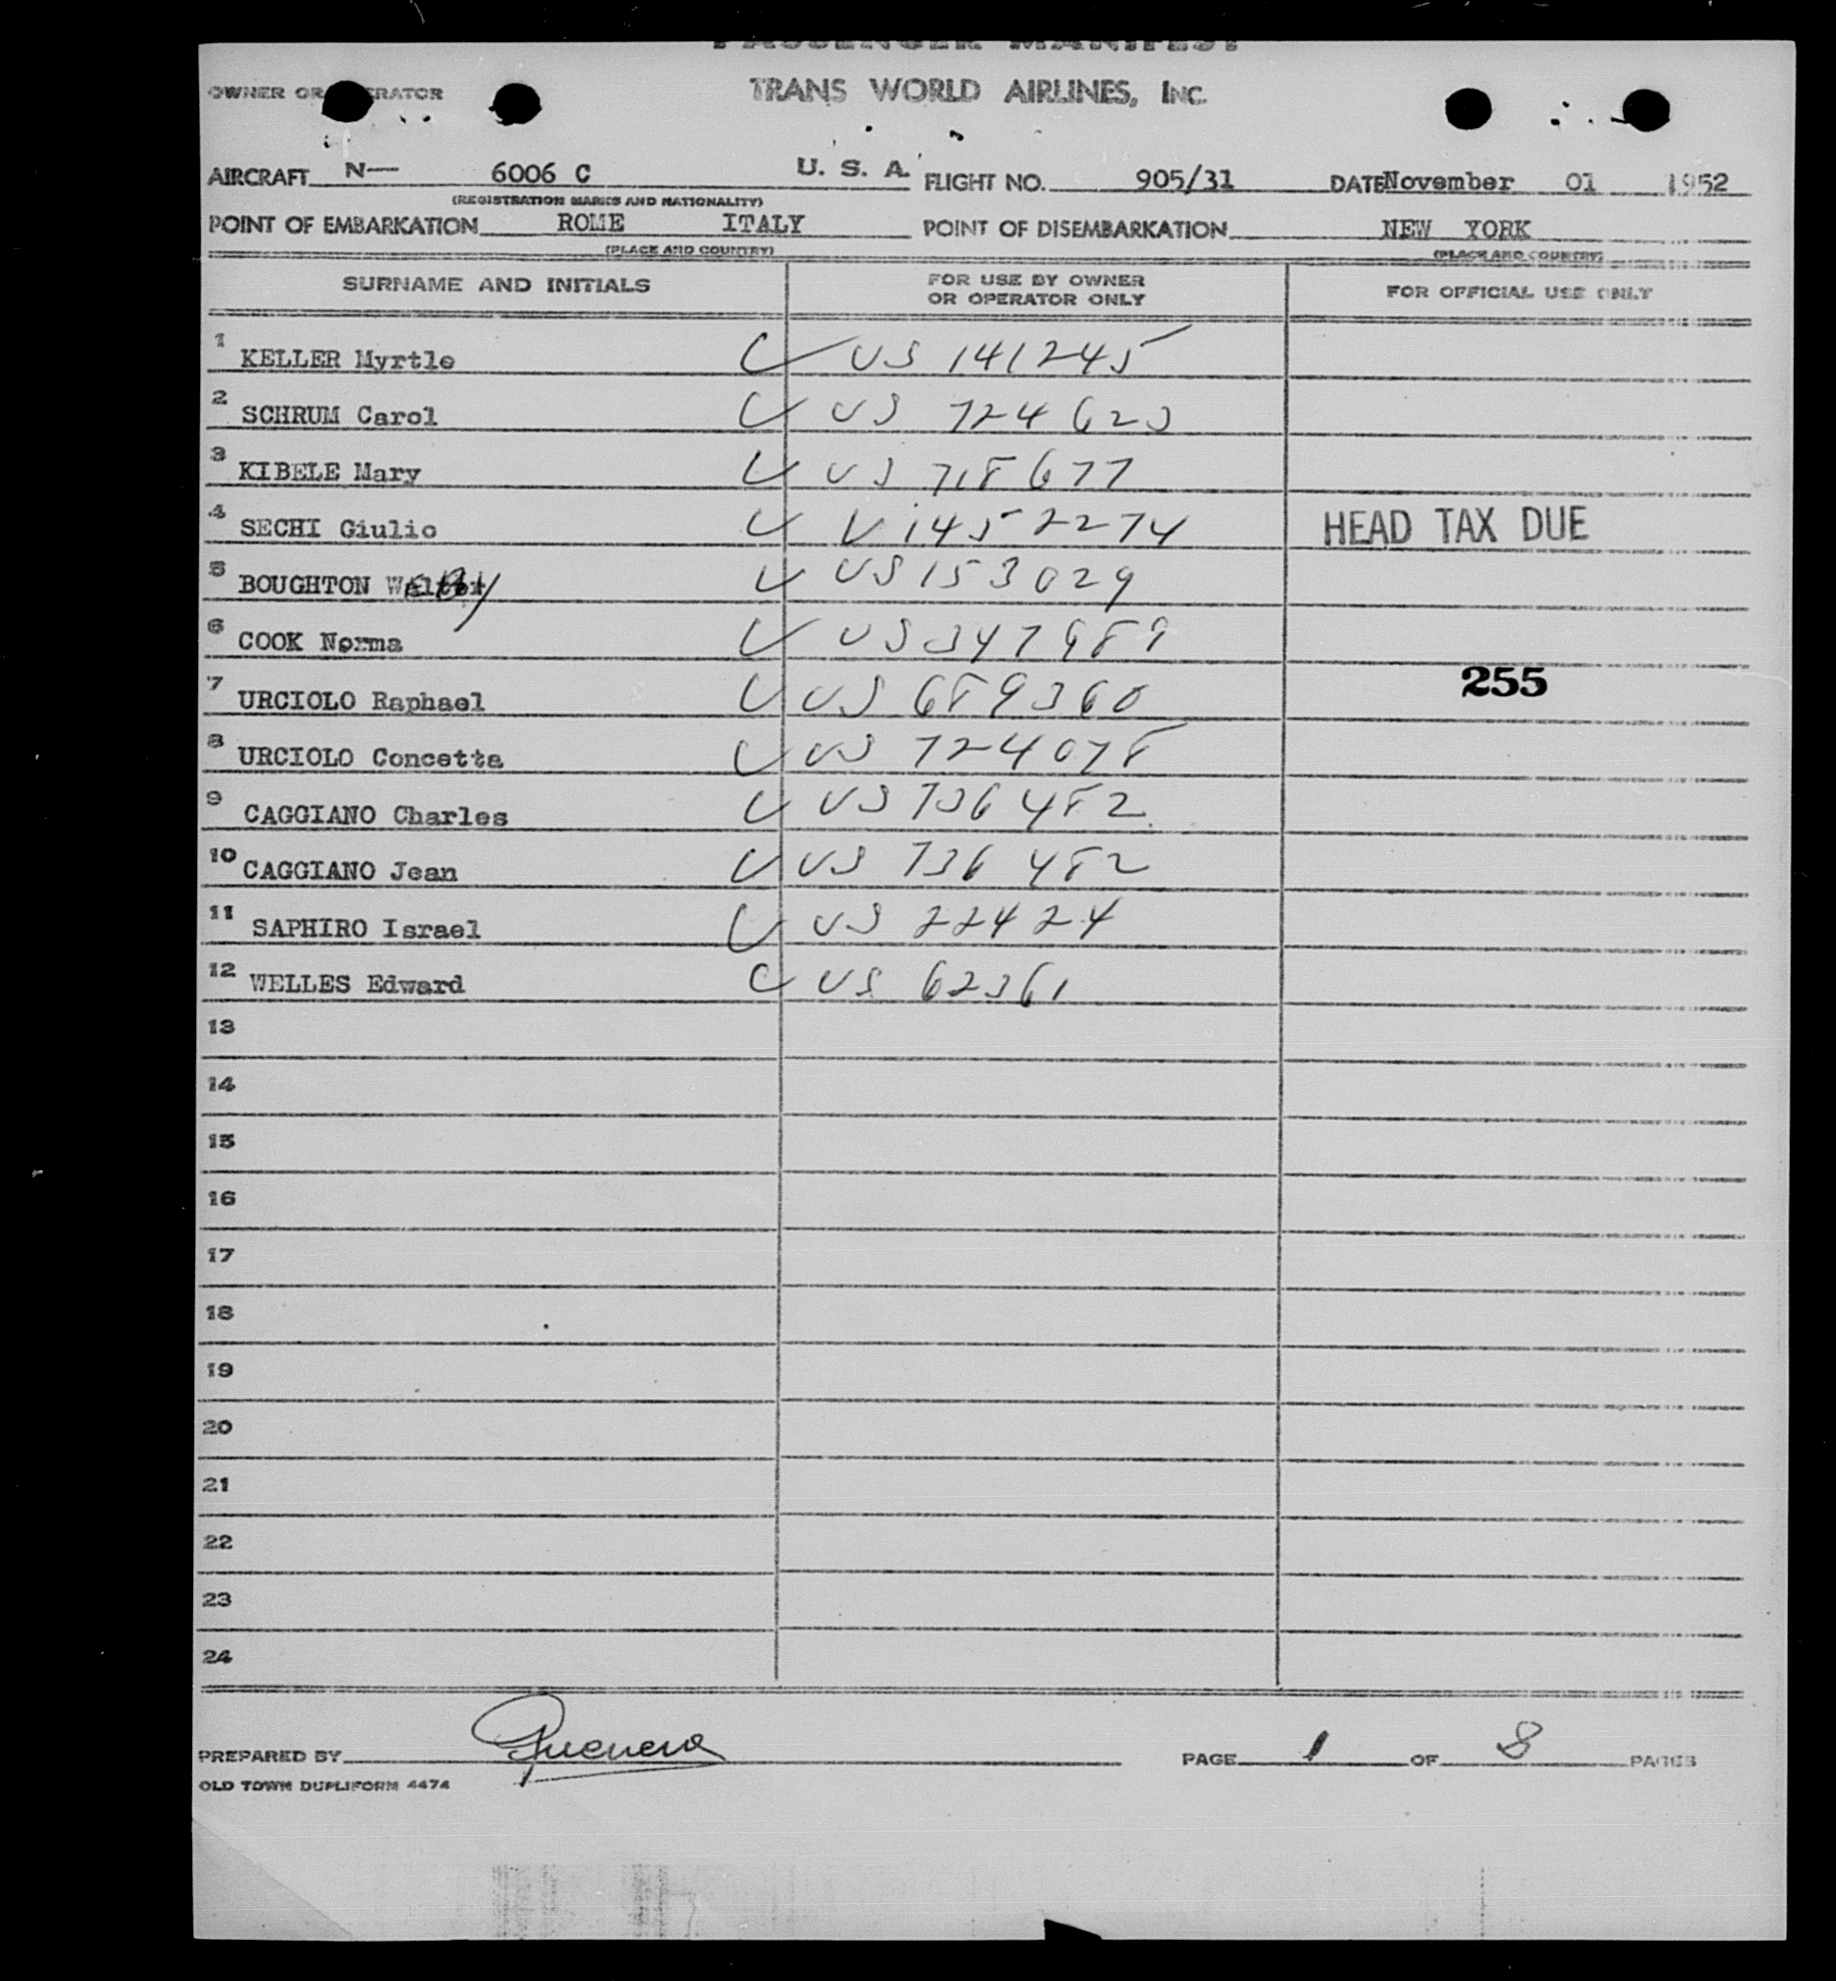 PASSENGER MANIFEST
OWNER OR OPERATOR TRANS WORLD AIRLINES, INC.
AIRCRAFT N— 6006 C U. S. A. FLIGHT NO. 905/31 DATE November 01 1952
(REGISTRATION MARKS AND NATIONALITY)
POINT OF EMBARKATION ROME ITALY POINT OF DISEMBARKATION NEW YORK
(PLACE AND COUNTRY) (PLACE AND COUNTRY)
SURNAME AND INITIALS FOR USE BY OWNER OR OPERATOR ONLY FOR OFFICIAL USE ONLY
1 KELLER Myrtle US 141245
2 SCHRUM Carol US 724623
3 KIBELE Mary US 718677
4 SECHI Giulio V 1452274 HEAD TAX DUE
5 BOUGHTON US 153029
6 COOK Norma US 347989
7 URCIOLO Raphael US 689360 255
8 URCIOLO Concetta US 724078
9 CAGGIANO Charles US 736482
10 CAGGIANO Jean US 736482
11 SAPHIRO Israel US 22424
12 WELLES Edward US 62361
13
14
15
16
17
18
19
20
21
22
23
24
PREPARED BY PAGE 1 OF 8 PAGES
OLD TOWN DUPLIFORM 4474